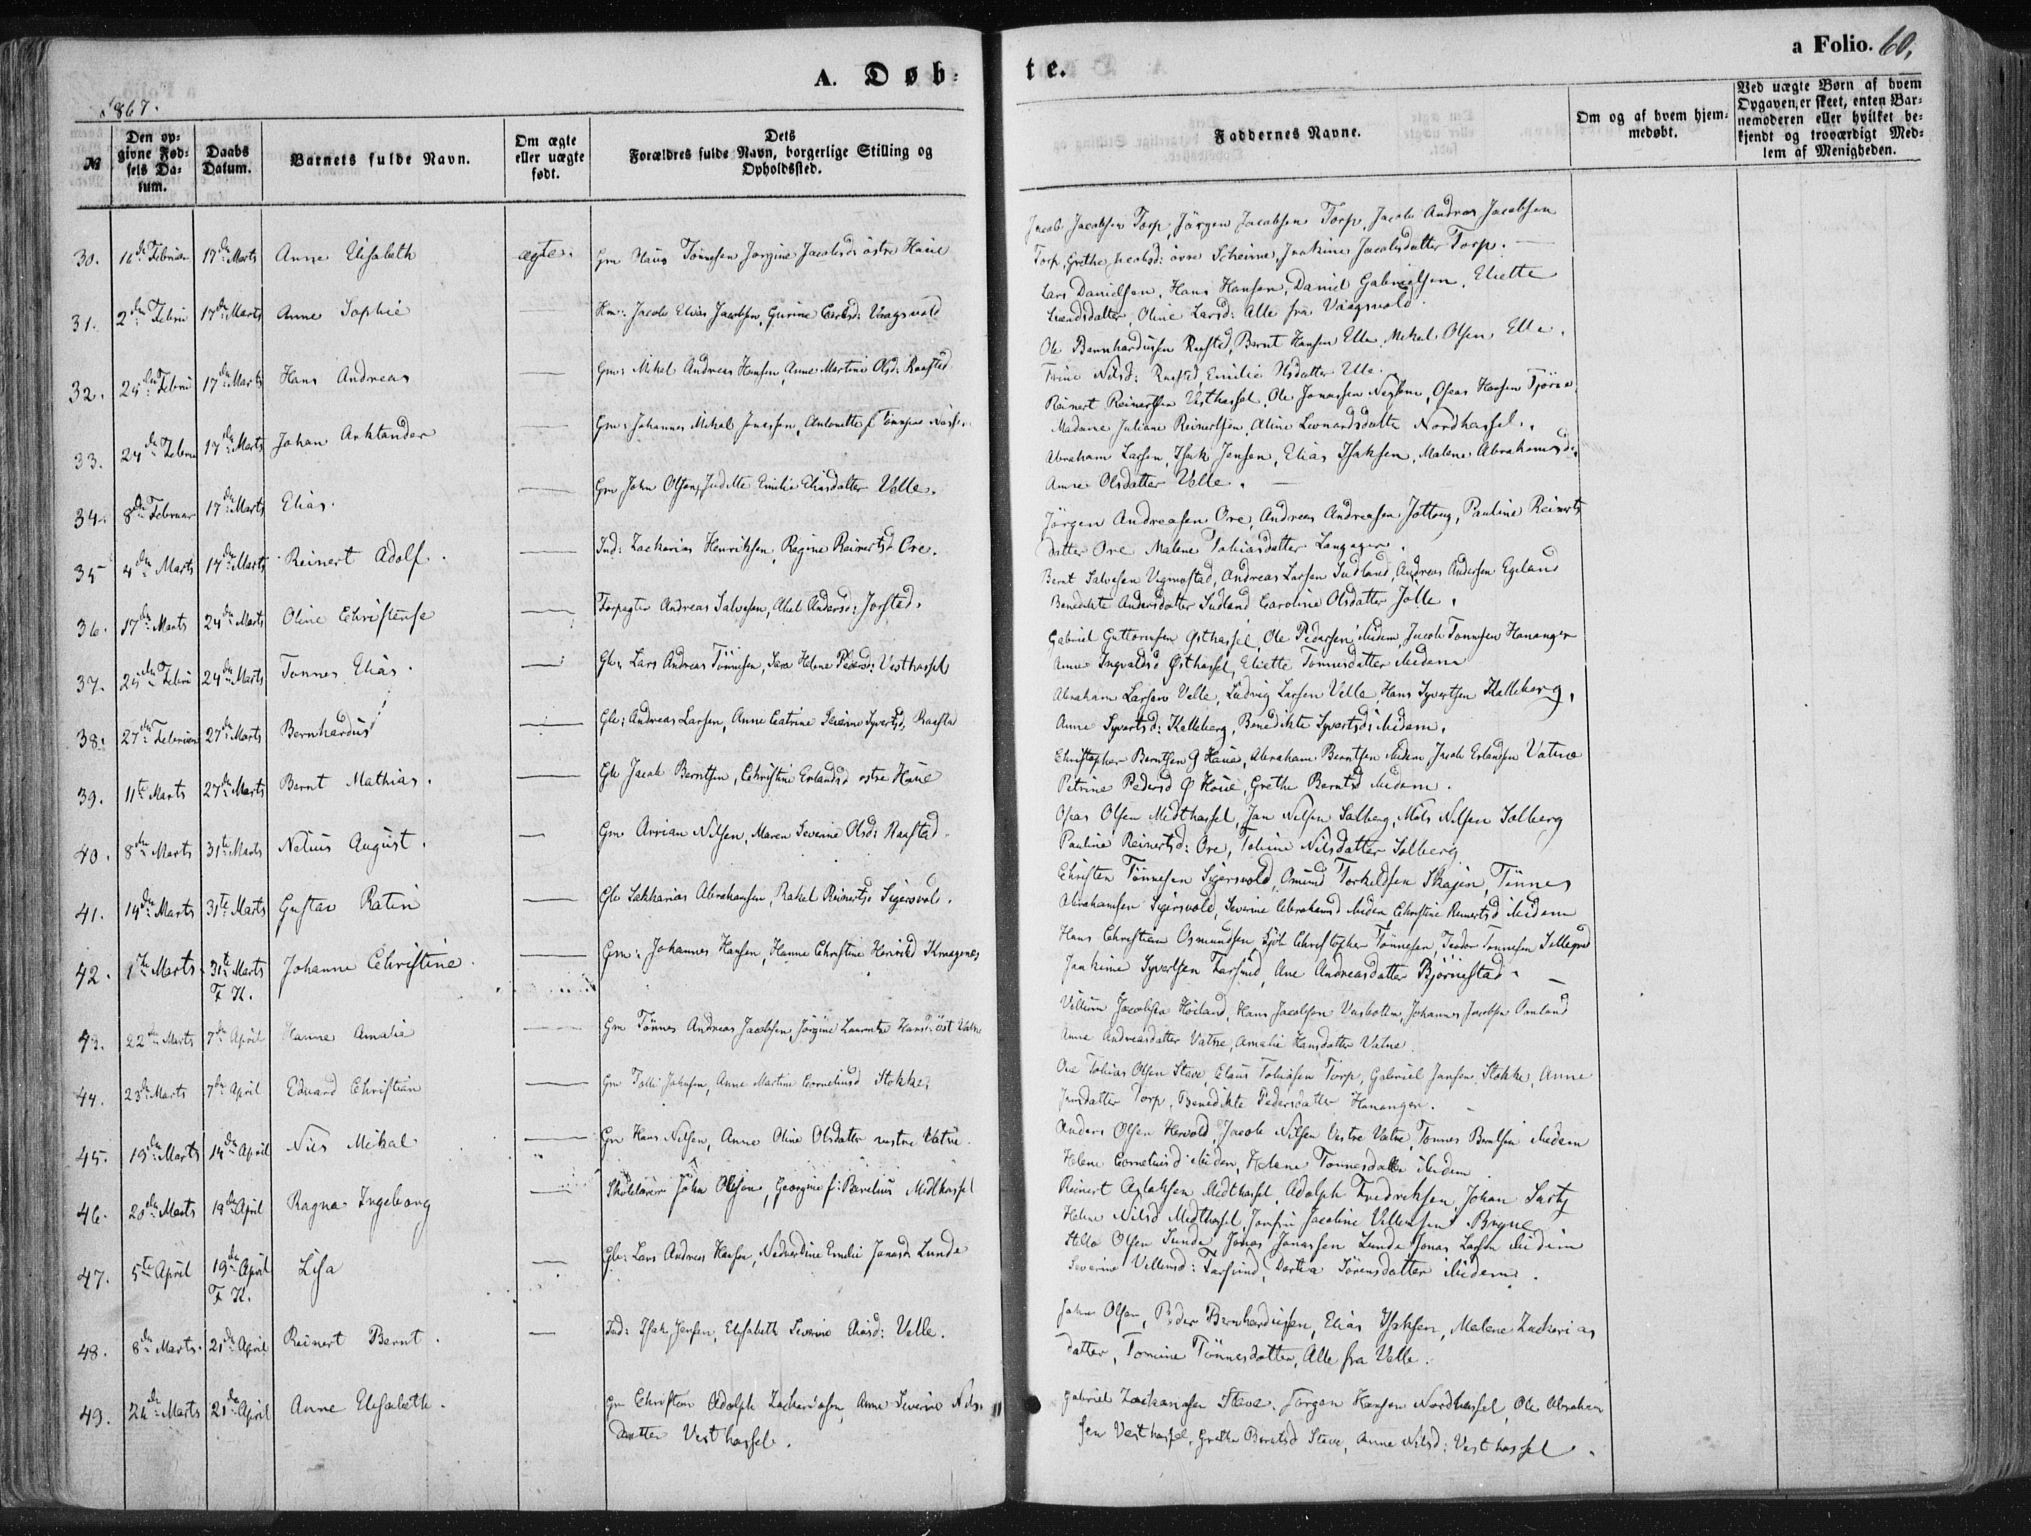 A. Døb-
te.
a Folio. 60,
1867.
№
Den opgivne Fødsels Datum.
Daabs Datum.
Barnets fulde Navn.
Om ægte eller uægte født.
Dets Forældres fulde Navn, borgerlige Stilling og Opholdssted.
Faddernes Navne.
Om og af hvem hjemmedøbt.
Ved uægte Børn af hvem Opgaven er skeet, enten Barnemoderen eller hvilket bekjendt og troværdigt Medlem af Menigheden.
30. 16de Februar 17de Marts Anne Elisabeth ægte. Gm Tønnesen Jorgine Jacobsd: østre Haue
Jacob Jacobsen Torp, Jørgen Jacobsen Torp, Jacob Andreas Jacobsen
Torp, Grethe Jacobsd: øvre Jacobsdatter Torp.
31. 2den Febru 17de Marts Anne Sophie Jacob Elias Jacobsen, Gurine Vaagsvold
Lars Danielsen, Hans Hansen, Daniel Gabrielsen, Eliette
Oline Larsd: Alle fra Vaagsvold
32. 25de Febru 17de Marts Hans Andreas Gm: Mikal Andreas Hansen, Anne Martine Olsd: Raastad
Ole Bernhardusen Raastad, Bernt Hansen Elle, Mikal Olsen Elle.
Trine Nilsd: Raastad, Emilie Olsdatter Elle.
33. 24de Febru 17de Marts Johan Gm: Johannes Mikal Jonassen, Antonette
Reinert Reinertsen Vesthassel, Ole Jonassen Oseas Hansen
Madame Juliane Reinertsen, Aline Leonardsdatter Nordhassel.
34. 8de Februar 17de Marts Elias. Gm John Olsen, Judithe Emilie Eliasdatter Velle.
Abraham Larsen, Isak Jensen, Elias Isaksen, Malene Abrahamsd:
Anne Olsdatter Velle.
35 4de Marts 17de Marts Reinert Adolf. Ind: Zacharias Henriksen, Regine Reinertsd Ore.
Jørgen Andreasen Ore, Andreas Andreasen Pauline Reinerts
datter Ore Malene Tobiasdatter Langager.
36. 17de Marts 24de Marts Oline Christense Forpagter Andreas Salvesen, Abel Andersd: Jorstad.
Bernt Salvesen Vigmostad, Andreas Larsen Sudland, Andreas Andersen Egeland
Benedikte Andersdatter Sudland Caroline Olsdatter Jølle.
37. 25de Febru 24de Marts Tønnes Elias. Gb: Lars Andreas Tønnesen, Sara Helene Pedersd: Vesthassel
Gabriel Guttormsen Østhassel, Ole Pedersen ibidem, Jacob Tønnesen Hananger
Anne Ingvaldsd Østhassel, Eliette Tønnesdatter ibidem
38. 27de Februar 27de Marts Bernhardus Gb: Andreas Larsen, Anne Catrine Severine Syvertsd: Raastad
Abraham Larsen Velle, Ludvig Larsen Velle, Hans Syvertsen Kalleberg,
Anne Syvertsd: Kalleberg, Benedikte Syvertsd: ibidem.
39. 11te Marts 27de Marts Bernt Mathias. Gb Jacob Berntsen, Christine Erlandsd østre Haue
Christopher Berntsen Ø Haue, Abraham Berntsen ibidem Jacob Erlandsen Vatne
Petrine Pedersd Ø Haue, Grethe Berntsd ibidem.
40. 8de Marts 31te Marts Nelius August. Gm. Arrian Nilsen, Maren Severine Olsd: Raastad.
Oseas Olsen Midthassel, Jan Nilsen Salberg, Mats Nilsen Solberg
Pauline Reinertsd: Ore, Tobine Nilsdatter Solberg
41. 14de Marts 31te Marts Gustav Ratin Gb Sakkarias Abrahamsen, Rakel Reinertsd Sigersvold.
Christen Tønnesen Sigersvold, Omund Torkildsen Skajen, Tønnes
Abrahamsen Sigersvold, Severine Abrahamsd ibidem Christine Reinertsd ibidem
42. 1te Marts 31te Marts F. K. Johanne Christine. Gm: Johannes Hansen, Hanne Christine Kragenes
Hans Christian Osmundsen Christopher Tønnesen, Teodor Tønnesen
Joakime Syvertsen Farsund, Ane Andreasdatter Bjørnestad
43. 22de Marts 7de April Hanne Amalia Gm Tønnes Andreas Jacobsen, Jørgine Laurentze Hansd: øst Vatne
Villum Jacobsen Høiland, Hans Jacobsen Johannes Jacobsen Omland
Anne Andreasdatter Vatne, Amalie Hansdatter Vatne.
44. 23de Marts 7de April Edvard Christian Gm Tolli Johnsen, Anne Martine Corneliusd Stokke,
Ole Tobias Olsen Stave, Claus Tobiasen Torp, Gabriel Jansen Stokke, Anne
Jensdatter Torp, Benedikte Pedersdatter Hananger.
45. 19de Marts 14de April Nils Mikal Gm Hans Nilsen, Anne Oline Olsdatter vestre Vatne.
Anders Olsen Hervold, Jacob Nilsen Vestre Vatne, Tønnes Berntsen ibidem
Helene Corneliusd ibidem, Helene Tønnesdatter ibidem
46. 20de Marts 19de April Ragna Ingeborg Skolelærer John Olsen, Georgine f: Barelius Midthassel
Reinert Aslaksen Midthassel, Adolph Fredriksen, Johan
Helene Nilsd Midthassel, Josefin Jacobine Villumsen Brgne
47. 5te April 19de April F. K. Lisa Gb: Lars Andreas Hansen, Emilie Jonasd: Lunde
Olsen Lunde, Jonas Jonassen Lunde Jonas Larsen ibidem
Severine Villumsd: Farsund, Dortea Sørensdatter ibidem.
48. 8de Marts. 21de April Reinert Bernt. Ind: Isak Jensen, Elisabeth Severine Eliasd: Velle.
John Olsen, Peder Bernhardusen, Elias Isaksen, Malene Zacharias
datter, Tomine Tønnesdatter, Alle fra Velle.
49. 26de Marts 21de April Anne Elisabeth. Gm Christian Adolph Zachariasen, Anne Severine Nils-
datter Vesthassel.
Gabriel Zachariasen Stave, Jørgen Hansen Nordhassel, Ole Abraham
sen Vesthassel, Grethe Berntsd Stave, Anne Nilsd: Vesthassel.